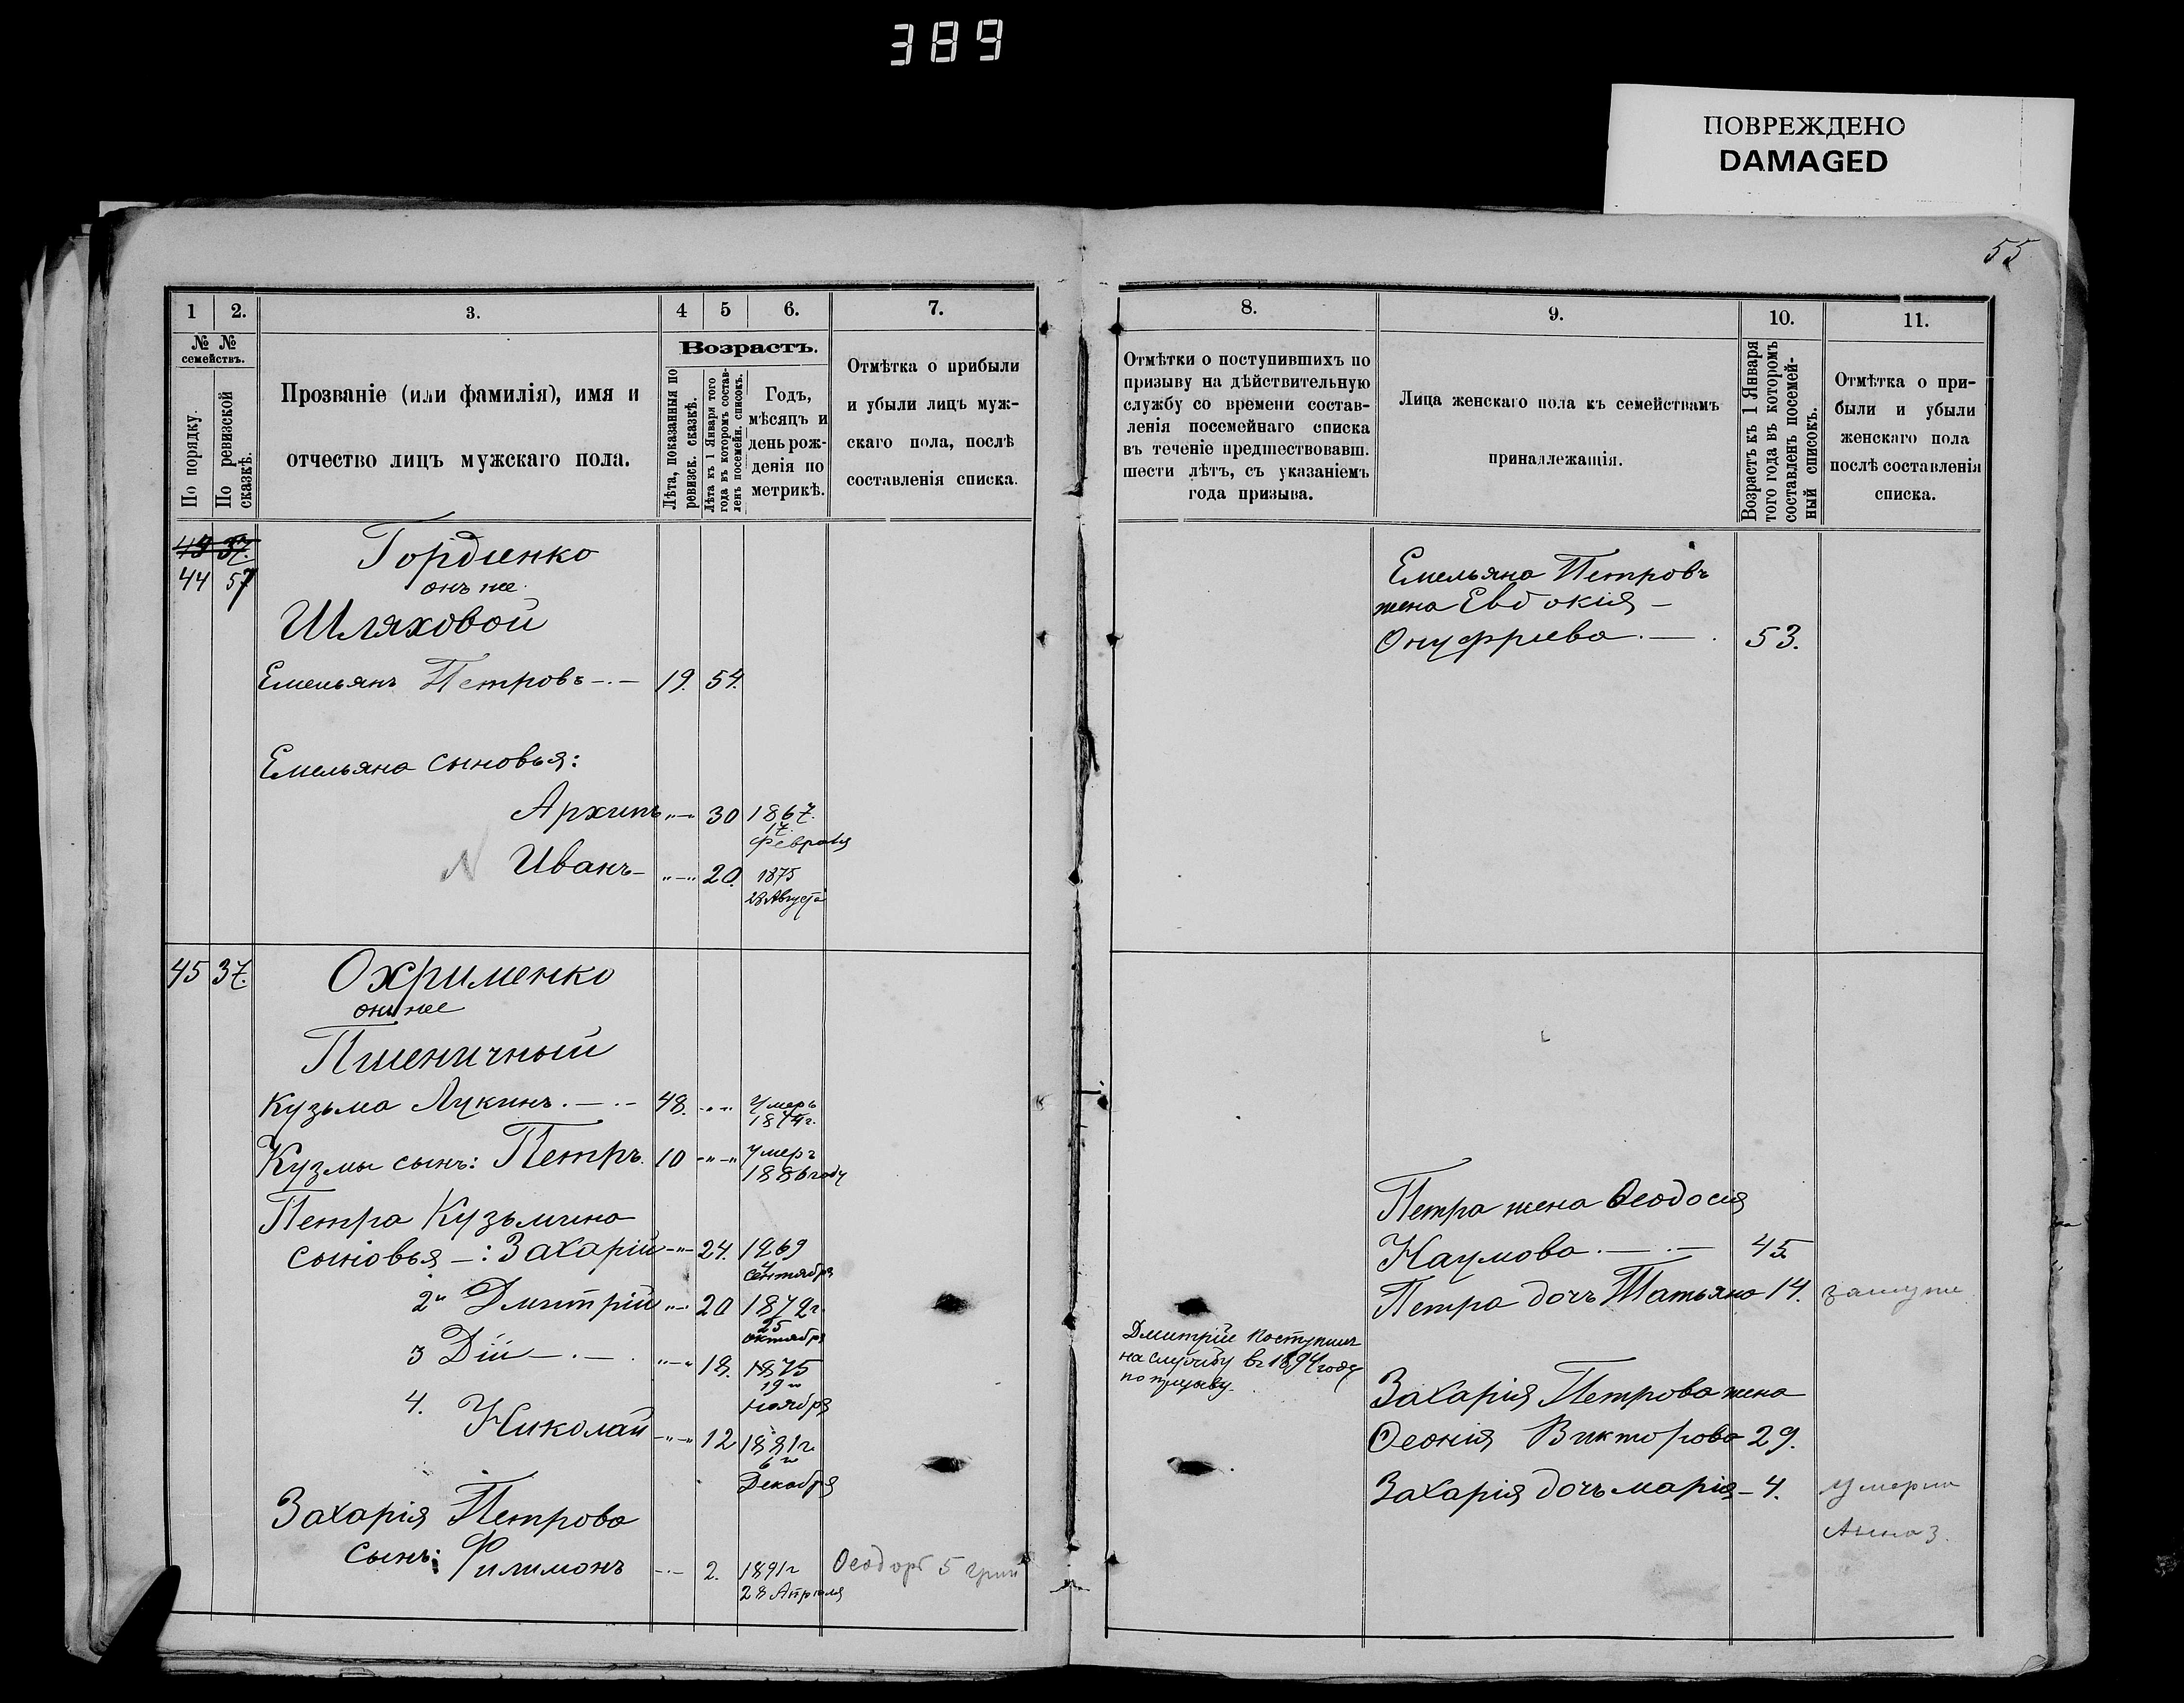 389
ПОВРЕЖДЕНО
DAMAGED
55
1
2.
3.
4
5
6.
7.
№ №
семействъ.
По порядку.
По ревизской
сказкѣ.
Прозваніе (или фамилія), имя и
отчество лицъ мужскаго пола.
Возрастъ.
Лѣта, показанныя по
ревизск. сказкѣ.
Лѣта къ 1 Января того
года въ которомъ состав-
ленъ посемейн. списокъ.
Годъ,
мѣсяцъ и
день рож-
денія по
метрикѣ.
Отмѣтка о прибыли
и убыли лицъ муж-
скаго пола, послѣ
составленія списка.
43 37.
44 57
Гордіенко
онъ же
Шляховой
Емельянъ Петровъ 19. 54.
Емельяна сыновья:
Архипъ 30 1867.
17.
Февраля
Иванъ 20. 1875
28 Августа
45 37.
Охрименко
онъ же
Пшеничный
Кузьма Лукинъ 48. Умеръ
1874г.
Кузмы сынъ: Петръ. 10 Умеръ
1886 году
Петра Кузьмина
сыновья: Захарій 24. 1869
4
Сентября
2й Дмитрій 20 1872г.
25
октября
3 Дій 18. 1875
19го
Ноября
4.
Николай 12 1881г.
6го
Декабря
Захарія Петрова
сынъ: Филимонъ 2. 1891г
28 Апрѣля
Ѳеодоръ 5
8.
9.
10.
11.
Отмѣтки о поступившихъ по
призыву на дѣйствительную
службу со времени состав-
ленія посемейнаго списка
въ теченіе предшествовавш.
шести лѣтъ, съ указаніемъ
года призыва.
Лица женскаго пола къ семействамъ
принадлежащія.
Возрастъ къ 1 Января
того года въ которомъ
составленъ посемей-
ный списокъ.
Отмѣтка о при-
были и убыли
женскаго пола
послѣ составленія
списка.
Емельяна Петровъ
жена Евдокія
Онуфріева 53.
Петра жена Ѳеодосія
Наумова 45
Петра дочь Татьяна 14. замуже
Дмитрій поступилъ
на службу въ 1894 году
по призыву.
Захарія Петрова жена
Ѳеонія Викторова 29.
Захарія дочь марія 4. умерла
Анна 3.